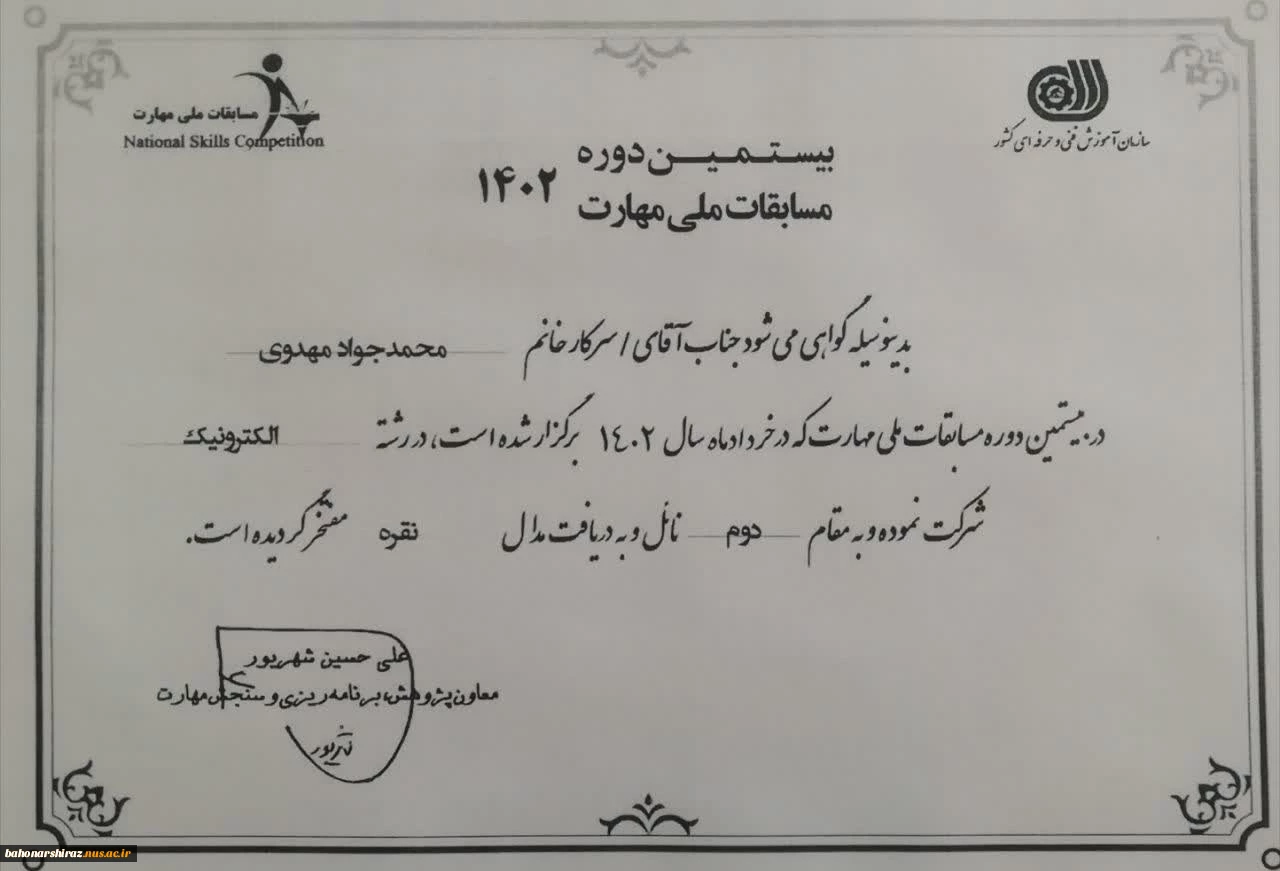 سازمان آموزش فنی و حرفه ای کشور
مسابقات ملی مهارت
National Skills Competition
بیستمین دوره
مسابقات ملی مهارت ۱۴۰۲
بدینوسیله گواهی می شود جناب آقای / سرکار خانم محمدجواد مهدوی
در بیستمین دوره مسابقات ملی مهارت که در خرداد ماه سال ۱۴۰۲ برگزار شده است، در رشته الکترونیک
شرکت نموده و به مقام دوم نائل و به دریافت مدال نقره مفتخر گردیده است.
علی حسین شهریور
معاون پژوهش، برنامه ریزی و سنجش مهارت
bahonarshiraz.nus.ac.ir